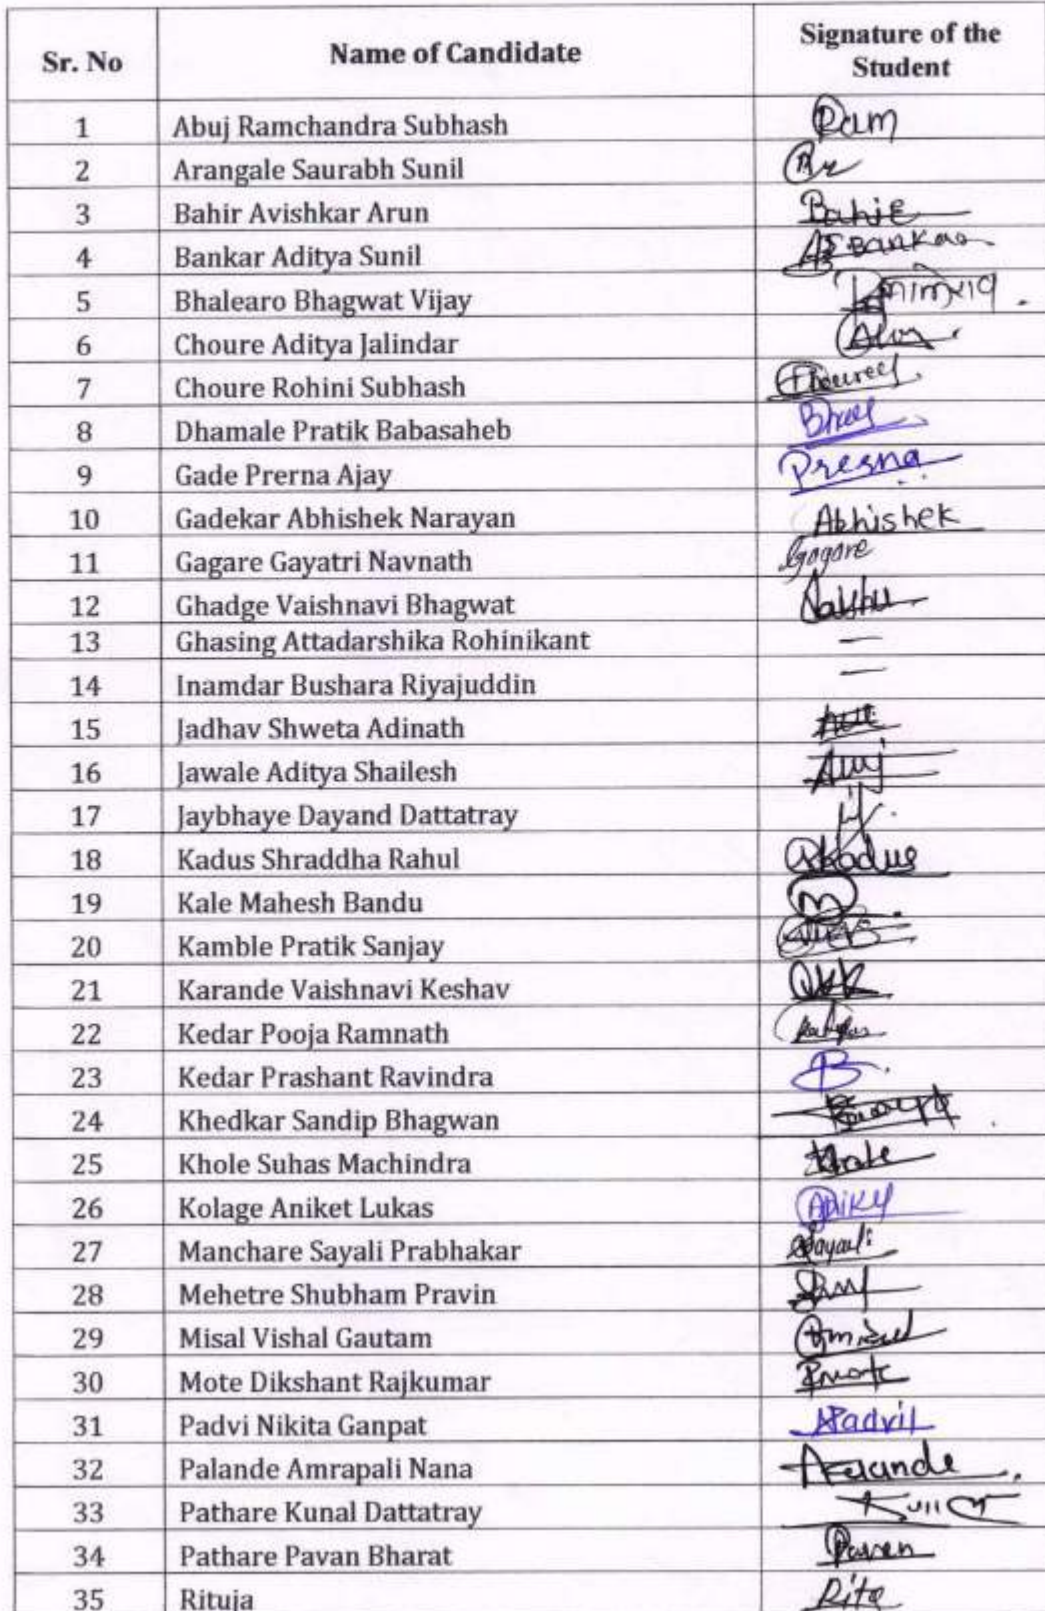 Sr. No Name of Candidate Signature of the Student
1 Abuj Ramchandra Subhash Ram
2 Arangale Saurabh Sunil
3 Bahir Avishkar Arun
4 Bankar Aditya Sunil Bankar
5 Bhalearo Bhagwat Vijay
6 Choure Aditya Jalindar
7 Choure Rohini Subhash
8 Dhamale Pratik Babasaheb
9 Gade Prerna Ajay Prerna
10 Gadekar Abhishek Narayan Abhishek
11 Gagare Gayatri Navnath Gagare
12 Ghadge Vaishnavi Bhagwat
13 Ghasing Attadarshika Rohinikant —
14 Inamdar Bushara Riyajuddin —
15 Jadhav Shweta Adinath
16 Jawale Aditya Shailesh
17 Jaybhaye Dayand Dattatray
18 Kadus Shraddha Rahul Kadus
19 Kale Mahesh Bandu M
20 Kamble Pratik Sanjay
21 Karande Vaishnavi Keshav
22 Kedar Pooja Ramnath
23 Kedar Prashant Ravindra
24 Khedkar Sandip Bhagwan
25 Khole Suhas Machindra
26 Kolage Aniket Lukas
27 Manchare Sayali Prabhakar Sayali
28 Mehetre Shubham Pravin
29 Misal Vishal Gautam
30 Mote Dikshant Rajkumar
31 Padvi Nikita Ganpat
32 Palande Amrapali Nana
33 Pathare Kunal Dattatray
34 Pathare Pavan Bharat Pavan
35 Rituja